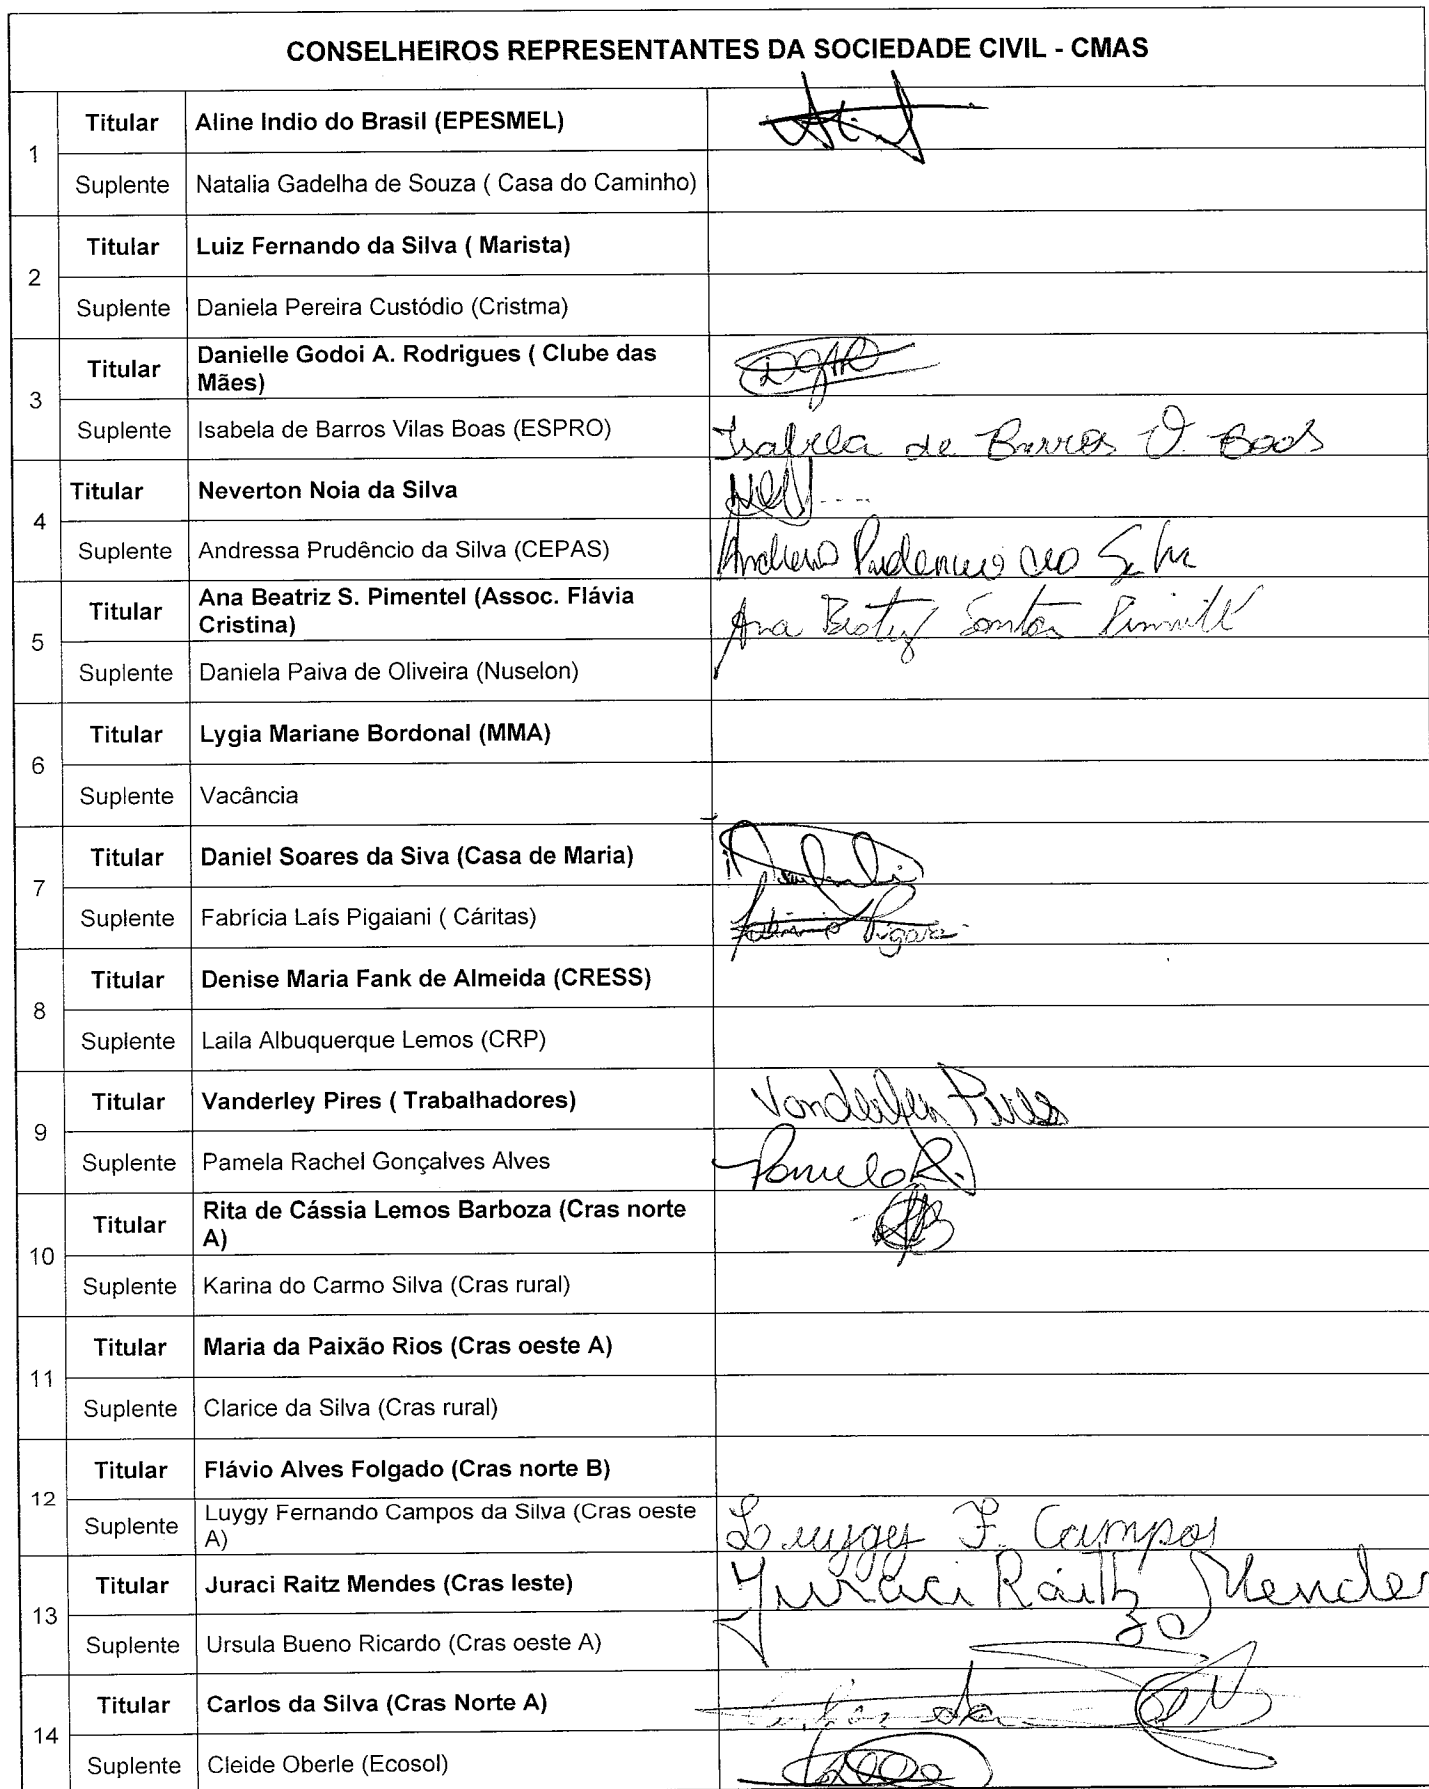 CONSELHEIROS REPRESENTANTES DA SOCIEDADE CIVIL - CMAS
1
Titular Aline Indio do Brasil (EPESMEL)
Suplente Natalia Gadelha de Souza ( Casa do Caminho)
2
Titular Luiz Fernando da Silva ( Marista)
Suplente Daniela Pereira Custódio (Cristma)
3
Titular Danielle Godoi A. Rodrigues ( Clube das
Mães)
Suplente Isabela de Barros Vilas Boas (ESPRO) Isabela de Barros V. Boas
4
Titular Neverton Noia da Silva
Suplente Andressa Prudêncio da Silva (CEPAS)
5
Titular Ana Beatriz S. Pimentel (Assoc. Flávia
Cristina)
Ana Beatriz Santos Pimentel
Suplente Daniela Paiva de Oliveira (Nuselon)
6
Titular Lygia Mariane Bordonal (MMA)
Suplente Vacância
7
Titular Daniel Soares da Siva (Casa de Maria)
Suplente Fabrícia Laís Pigaiani ( Cáritas)
8
Titular Denise Maria Fank de Almeida (CRESS)
Suplente Laila Albuquerque Lemos (CRP)
9
Titular Vanderley Pires ( Trabalhadores) Vanderley Pires
Suplente Pamela Rachel Gonçalves Alves Pamela R.
10
Titular Rita de Cássia Lemos Barboza (Cras norte
A)
Suplente Karina do Carmo Silva (Cras rural)
11
Titular Maria da Paixão Rios (Cras oeste A)
Suplente Clarice da Silva (Cras rural)
12
Titular Flávio Alves Folgado (Cras norte B)
Suplente Luygy Fernando Campos da Silva (Cras oeste
A)
Luygy F. Campos
13
Titular Juraci Raitz Mendes (Cras leste) Juraci Raitz Mendes
Suplente Ursula Bueno Ricardo (Cras oeste A)
14
Titular Carlos da Silva (Cras Norte A)
Suplente Cleide Oberle (Ecosol)